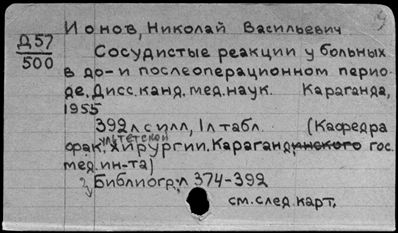 Ионов, Николай Васильевич
Д57
500
Сосудистые реакции у больных
в до- и послеоперационном перио-
де. Дисс. канд. мед. наук. Караганда,
1955
392 л. с илл, 1 л табл. (Кафедра
фак.ультетской хирургии. Карагандинского гос.
мед. ин-та)
Библиогр. л 374-392
см. след. карт.